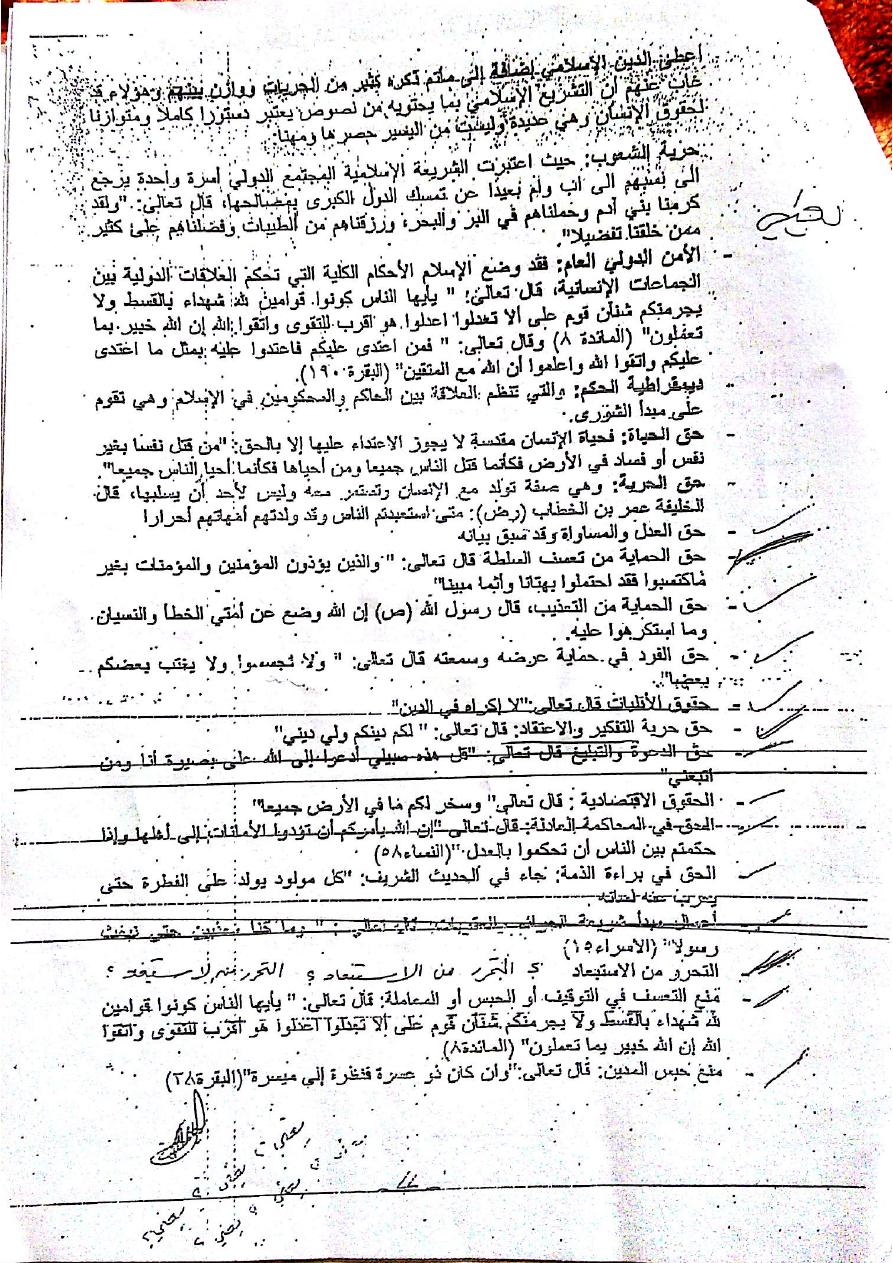 أعطى الدين الإسلامي إضافة إلى ماتم ذكره كثير من الحريات ووازن بينهم وهؤلاء قد
غاب عنهم أن التشريع الإسلامي بما يحتويه من نصوص يعتبر دستورا كاملا ومتوازنا
لحقوق الإنسان وهي عديدة وليست من اليسير حصرها ومنها:
حرية الشعوب: حيث اعتبرت الشريعة الإسلامية المجتمع الدولي أسرة واحدة يرجع
الى نسبهم الى اب وأم بعيدا عن تمسك الدول الكبرى بمصالحها، قال تعالى: "ولقد
كرمنا بني آدم وحملناهم في البر والبحر ورزقناهم من الطيبات وفضلناهم على كثير
ممن خلقنا تفضيلا".
- الأمن الدولي العام: فقد وضع الإسلام الأحكام الكلية التي تحكم العلاقات الدولية بين
الجماعات الإنسانية، قال تعالى: " يأيها الناس كونوا قوامين لله شهداء بالقسط ولا
يجرمنكم شنأن قوم على ألا تعدلوا اعدلوا هو أقرب للتقوى واتقوا الله إن الله خبير بما
تعملون" (المائدة ٨) وقال تعالى: " فمن اعتدى عليكم فاعتدوا عليه بمثل ما اعتدى
عليكم واتقوا الله واعلموا أن الله مع المتقين" (البقرة ١٩٠).
- ديمقراطية الحكم: والتي تنظم العلاقة بين الحاكم والمحكومين في الإسلام وهي تقوم
على مبدأ الشورى.
- حق الحياة: فحياة الإنسان مقدسة لا يجوز الاعتداء عليها إلا بالحق: "من قتل نفسا بغير
نفس أو فساد في الأرض فكأنما قتل الناس جميعا ومن أحياها فكأنما أحيا الناس جميعا".
- حق الحرية: وهي صفة تولد مع الإنسان وتستمر معه وليس لأحد أن يسلبها، قال
الخليفة عمر بن الخطاب (رض): متى استعبدتم الناس وقد ولدتهم أمهاتهم أحرارا
- حق العدل والمساواة وقد سبق بيانه
- حق الحماية من تعسف السلطة قال تعالى: " والذين يؤذون المؤمنين والمؤمنات بغير
مااكتسبوا فقد احتملوا بهتانا وأثما مبينا"
- حق الحماية من التعذيب، قال رسول الله (ص) إن الله وضع عن أمتي الخطأ والنسيان
وما استكرهوا عليه.
- حق الفرد في حماية عرضه وسمعته قال تعالى: " ولا تجسسوا ولا يغتب بعضكم
بعضا".
- حقوق الأقليات قال تعالى:"لا إكراه في الدين"
- حق حرية التفكير والاعتقاد: قال تعالى: " لكم دينكم ولي ديني"
- حق الدعوة والتبليغ قال تعالى: "قل هذه سبيلي أدعوا إلى الله على بصيرة أنا ومن
اتبعني"
- الحقوق الاقتصادية : قال تعالى" وسخر لكم ما في الأرض جميعا"
- الحق في المحاكمة العادلة: قال تعالى "إن الله يأمركم أن تؤدوا الأمانات إلى أهلها وإذا
حكمتم بين الناس أن تحكموا بالعدل "(النساء٥٨)
- الحق في براءة الذمة: جاء في الحديث الشريف: "كل مولود يولد على الفطرة حتى
يعرب عنه لسانه
- مبدأ شرعية الجرائم والعقوبات: قال تعالى : " وما كنا معذبين حتى نبعث
رسولا" (الاسراء١٥)
- التحرو من الاستبعاد ؟ التحرر من الاستبعاد ؟
- منع التعسف في التوقيف أو الحبس أو المعاملة: قال تعالى: " يأيها الناس كونوا قوامين
لله شهداء بالقسط ولا يجرمنكم شنأن قوم على ألا تعدلوا اعدلوا هو أقرب للتقوى واتقوا
الله إن الله خبير بما تعملون" (المائدة٨)
- منع حبس المدين: قال تعالى:"وان كان ذو عسرة فنظرة إلى ميسرة"(البقرة٢٨)
يعني ؟
يعني ؟
يعني ؟